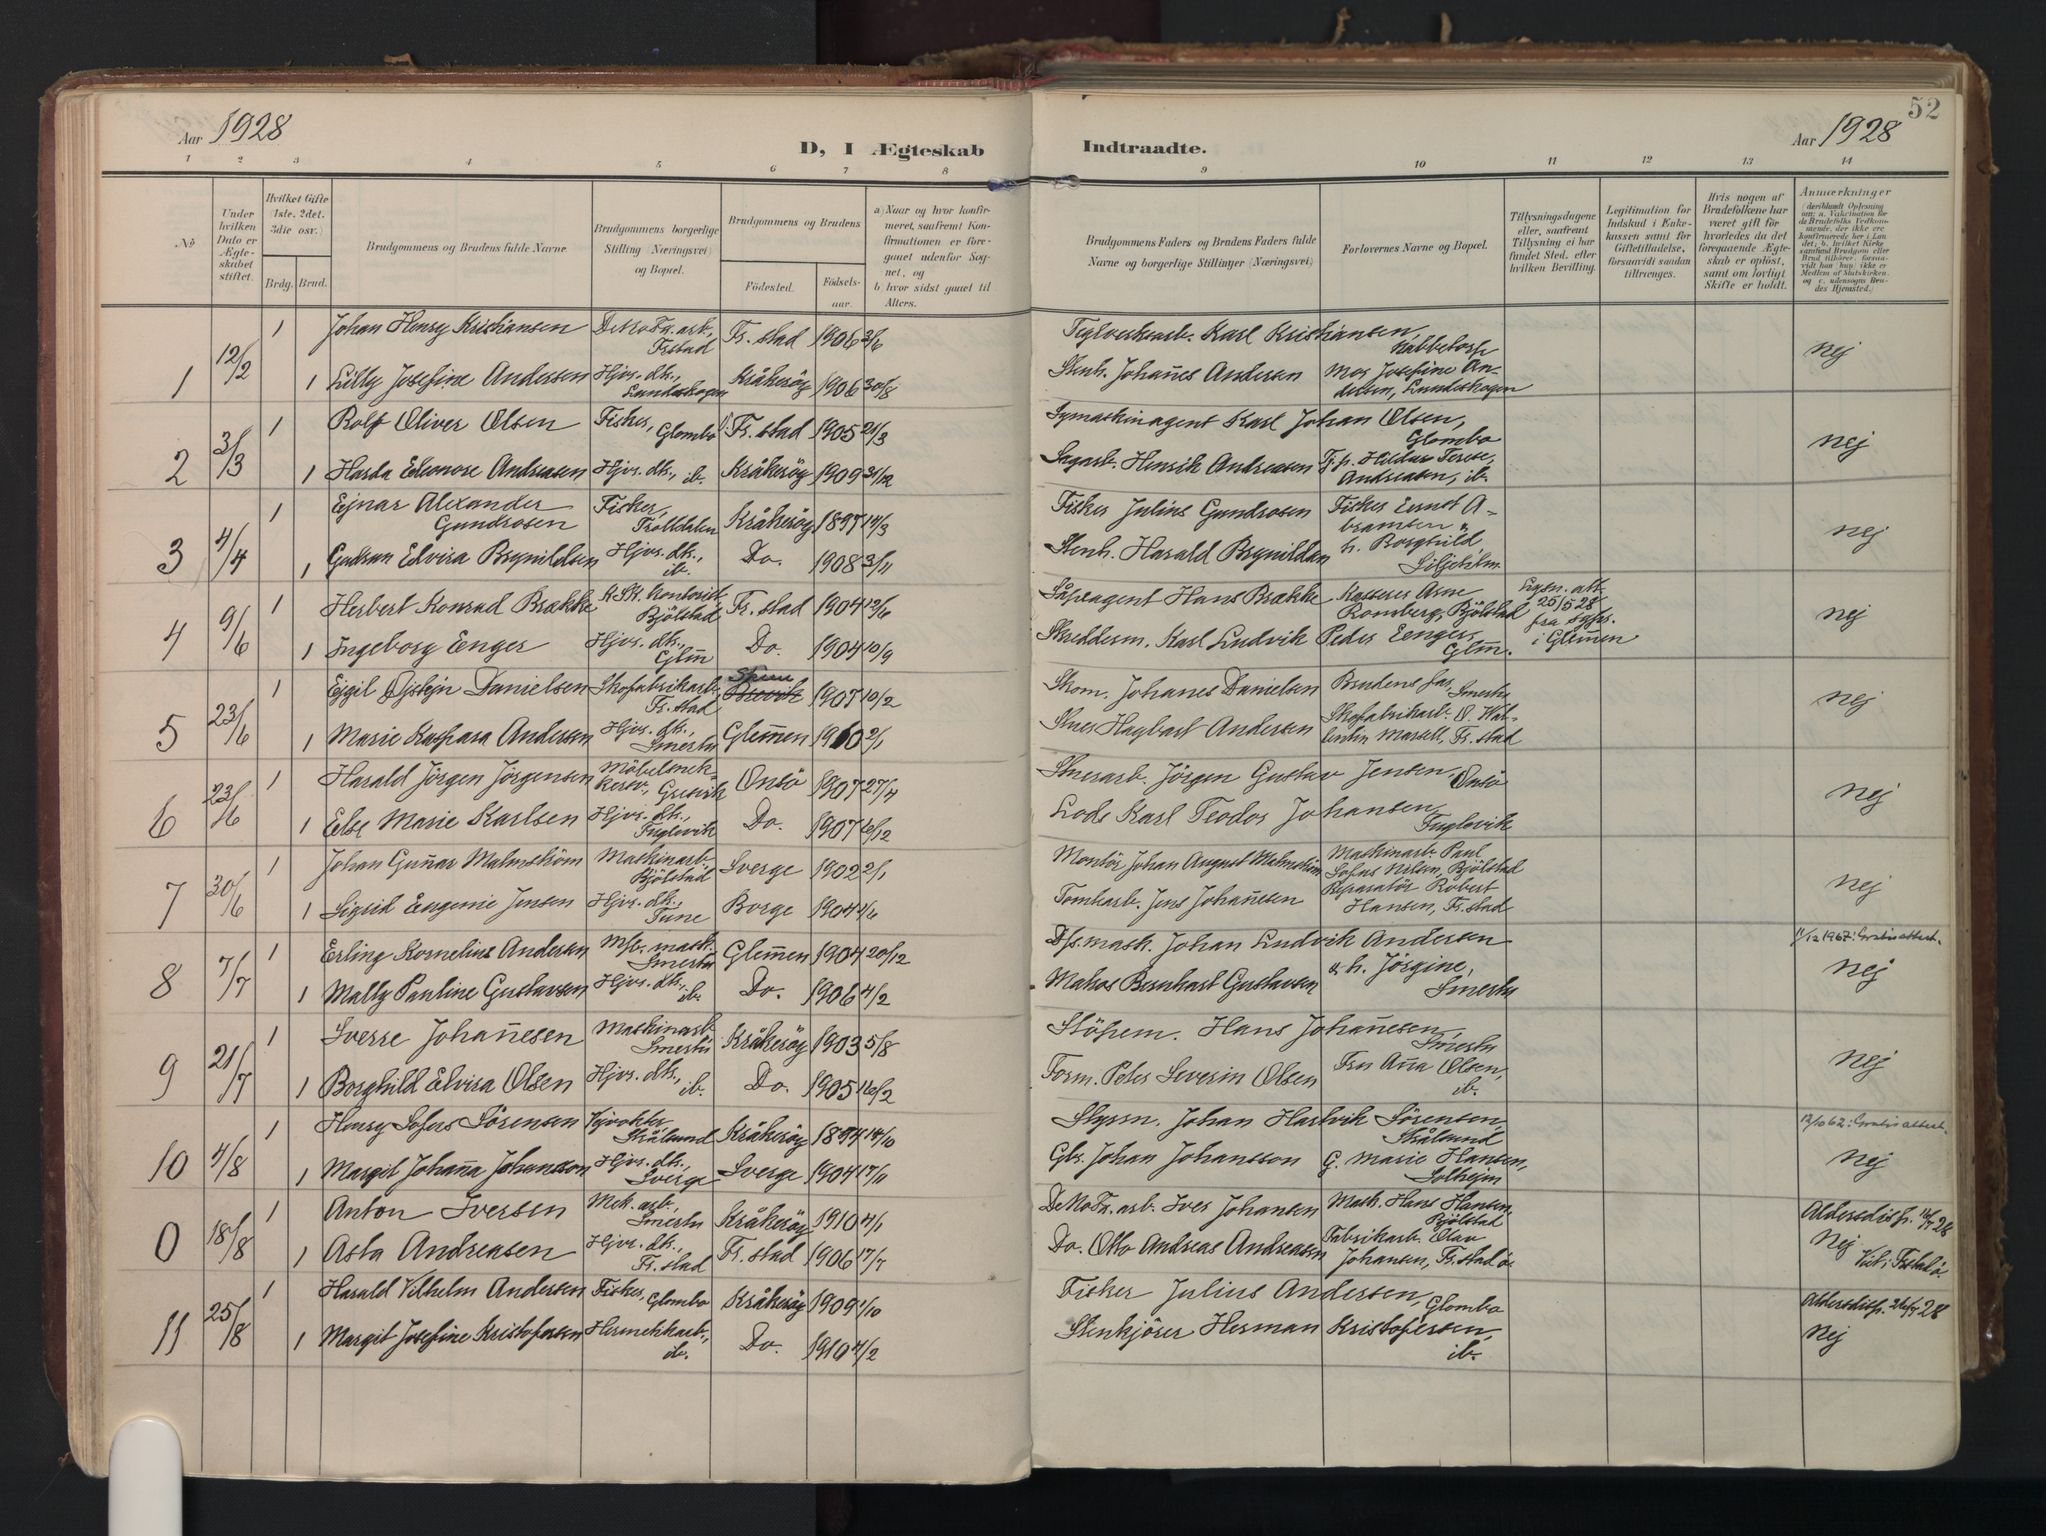 52
Aar 1928
D, I Ægteskab
Indtraadte.
Aar 1928
1 2 3 4 5 6 7 8 9 10 11 12 13 14
No
Under hvilken Dato er Ægteskabet stiftet.
Hvilket Gifte (1ste, 2det, 3die osv.)
Brdg. Brud.
Brudgommens og Brudens fulde Navne.
Brudgommens borgerlige Stilling (Næringsvei) og Bopæl.
Brudgommens og Brudens
Fødested.
Fødselsaar.
a) Naar og hvor konfirmeret, saafremt Konfirmationen er foregaaet udenfor Sognet, og
b) hvor sidst gaaet til Alters.
Brudgommens Faders og Brudens Faders fulde Navne og borgerlige Stillinger (Næringsvei)
Forlovernes Navne og Bopæl.
Tillysningsdagene eller, saafremt Tillysning ei har fundet Sted, efter hvilken Bevilling.
Legitimation for Indskud i Enkekassen samt for Giftetilladelse, forsaavidt saadan tiltrænges.
Hvis nogen af Brudefolkene har været gift før hvorledes da det foregaaende Ægteskab er opløst, samt om lovligt Skifte er holdt.
Anmærkninger
1 12/2
1 Johan Henry Kristiansen DeNoFa. arb., Frstad Fr. stad 1906 3/6 Teglverksarb. Karl Kristiansen, Kabbetorp nej
1 Lilly Josefine Andersen Hjvs. dt., Lundeskogen Kråkerøy 1906 30/8 Stenh. Johannes Andersen Mor Josefine Andersen, Lundeskogen
2 3/3
1 Rolf Oliver Olsen Fisker, Glombo Fr. stad 1905 21/3 Symaskinagent Karl Johan Olsen, Glombo nej
1 Harda Eleonore Andreasen Hjvs. dt., ib. Kråkerøy 1909 31/12 Sagarb. Henrik Andreasen Tj. p. Hildur Terese Andreasen, ib.
3 4/4
1 Ejnar Alexander Gundrosen Fisker, Trolldalen Kråkerøy 1897 14/3 Fisker Julius Gundrosen Fisker Ernst Abramsen nej
1 Gudrun Elvira Brynildsen Hjvs. dt., ib. Do. 1908 3/11 Stenh. Harald Brynildsen h. Borghild Liljeholm
4 9/6
1 Herbert Konrad Brække Bjölstad Fr. stad 1904 12/6 Såpeagent Hans Brække Kasserer Arne Romberg, Bjölstad Lysn. att. 25/5 28 fra sogpr. i Glemmen nej
1 Ingeborg Enger Hjvs. dt., Glm Do. 1904 10/9 Skredderm. Karl Ludvik Peder Eenger, Glm.
5 23/6
1 Ejgil Øjstejn Danielsen Skofabrikarb., Fr. stad 1907 10/2 Skom. Johanes Danielsen Brudens far, Smertu nej
1 Marie Kaspara Andersen Hjvs. dt., Smertu Glemmen 1910 2/1 Stner Hagbart Andersen Skofabrikarb. V. Valentin Marsell, Fr. stad
6 23/6
1 Harald Jörgen Jörgensen Möbelsnekkersv. Gresvik Onsö 1907 27/4 Stenarb. Jörgen Gustav Jensen, Onsö nej
1 Else Marie Karlsen Hjvs. dt., Fuglevik Do. 1907 16/12 Lods Karl Teodor Johansen, Fuglevik
7 30/6
1 Johan Gunnar Malmström Maskinarb. Bjölstad Sverge 1902 2/1 Montör Johan August Malmström Maskinarb. Paul Sofus Nilsen, Bjölstad nej
1 Sigrid Eugenie Jensen Hjvs. dt., Tune Borge 1904 4/6 Tomtearb. Jens Johannesen Reparatör Robert Hansen, Fr. stad
8 7/7
1 Erling Kornelius Andersen Mfb. mask. Smertu Glemmen 1904 20/12 Dfs. mask. Johan Ludvik Andersen 11/12 1967: Gratis attest. nej
1 Mally Pauline Gustavsen Hjvs. dt., ib. Do. 1906 4/2 Matros Bernhart Gustavsen & h. Jörgine, Smertu
9 21/7
1 Sverre Johannesen Maskinarb. Smertu Kråkerøy 1903 5/8 Stöperm. Hans Johannesen, Smertu nej
1 Borghild Elvira Olsen Hjvs. dt., ib. Do. 1905 16/2 Form. Peter Severin Olsen Fru Anna Olsen, ib.
10 4/8
1 Henry Sofus Sörensen Vejvokter Stålsund Kråkerøy 1894 14/10 Styrm. Johan Hartvik Sörensen, Stålsund 12/10 62: Gratis attest. nej
1 Margit Johanna Johansson Hjvs. dt., Sverge Sverge 1904 17/11 Gbr. Johan Johansson G. Marie Hansen, Solhejm
0 18/8
1 Anton Iversen Mek. arb., Smertu Kråkerøy 1910 4/1 DeNoFa. arb. Iver Johansen Mask. Hans Hansen, Bjölstad Aldersdisp. 16/7 28
1 Asta Andreasen Hjvs. dt., Fr. stad Fr. stad 1906 17/7 Do. Otto Andreas Andreasen Fabrikarb. Olav Johansen, Fr. stad ö. Nej Viet i Frstad ö.
11 25/8
1 Harald Vilhelm Andersen Fisker, Glombo Kråkerøy 1909 1/10 Fisker Julius Andersen, Glombo Aldersdisp. 26/7 28
1 Margit Josefine Kristofersen Hermetikkarb., ib. Do. 1910 4/2 Stenkjörer Herman Kristofersen, ib. Nej